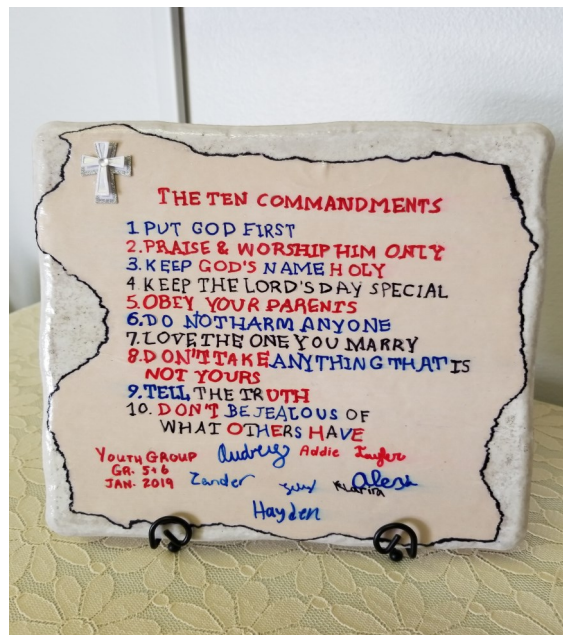 THE TEN COMMANDMENTS
1 PUT GOD FIRST
2. PRAISE & WORSHIP HIM ONLY
3. KEEP GOD'S NAME HOLY
4 KEEP THE LORD'S DAY SPECIAL
5. OBEY YOUR PARENTS
6. DO NOT HARM ANYONE
7. LOVE THE ONE YOU MARRY
8. DON'T TAKE ANYTHING THAT IS
NOT YOURS
9. TELL THE TRUTH
10. DON'T BE JEALOUS OF
WHAT OTHERS HAVE
YOUTH GROUP Audrey Addie
GR. 5+6
JAN. 2019 Zander
Hayden